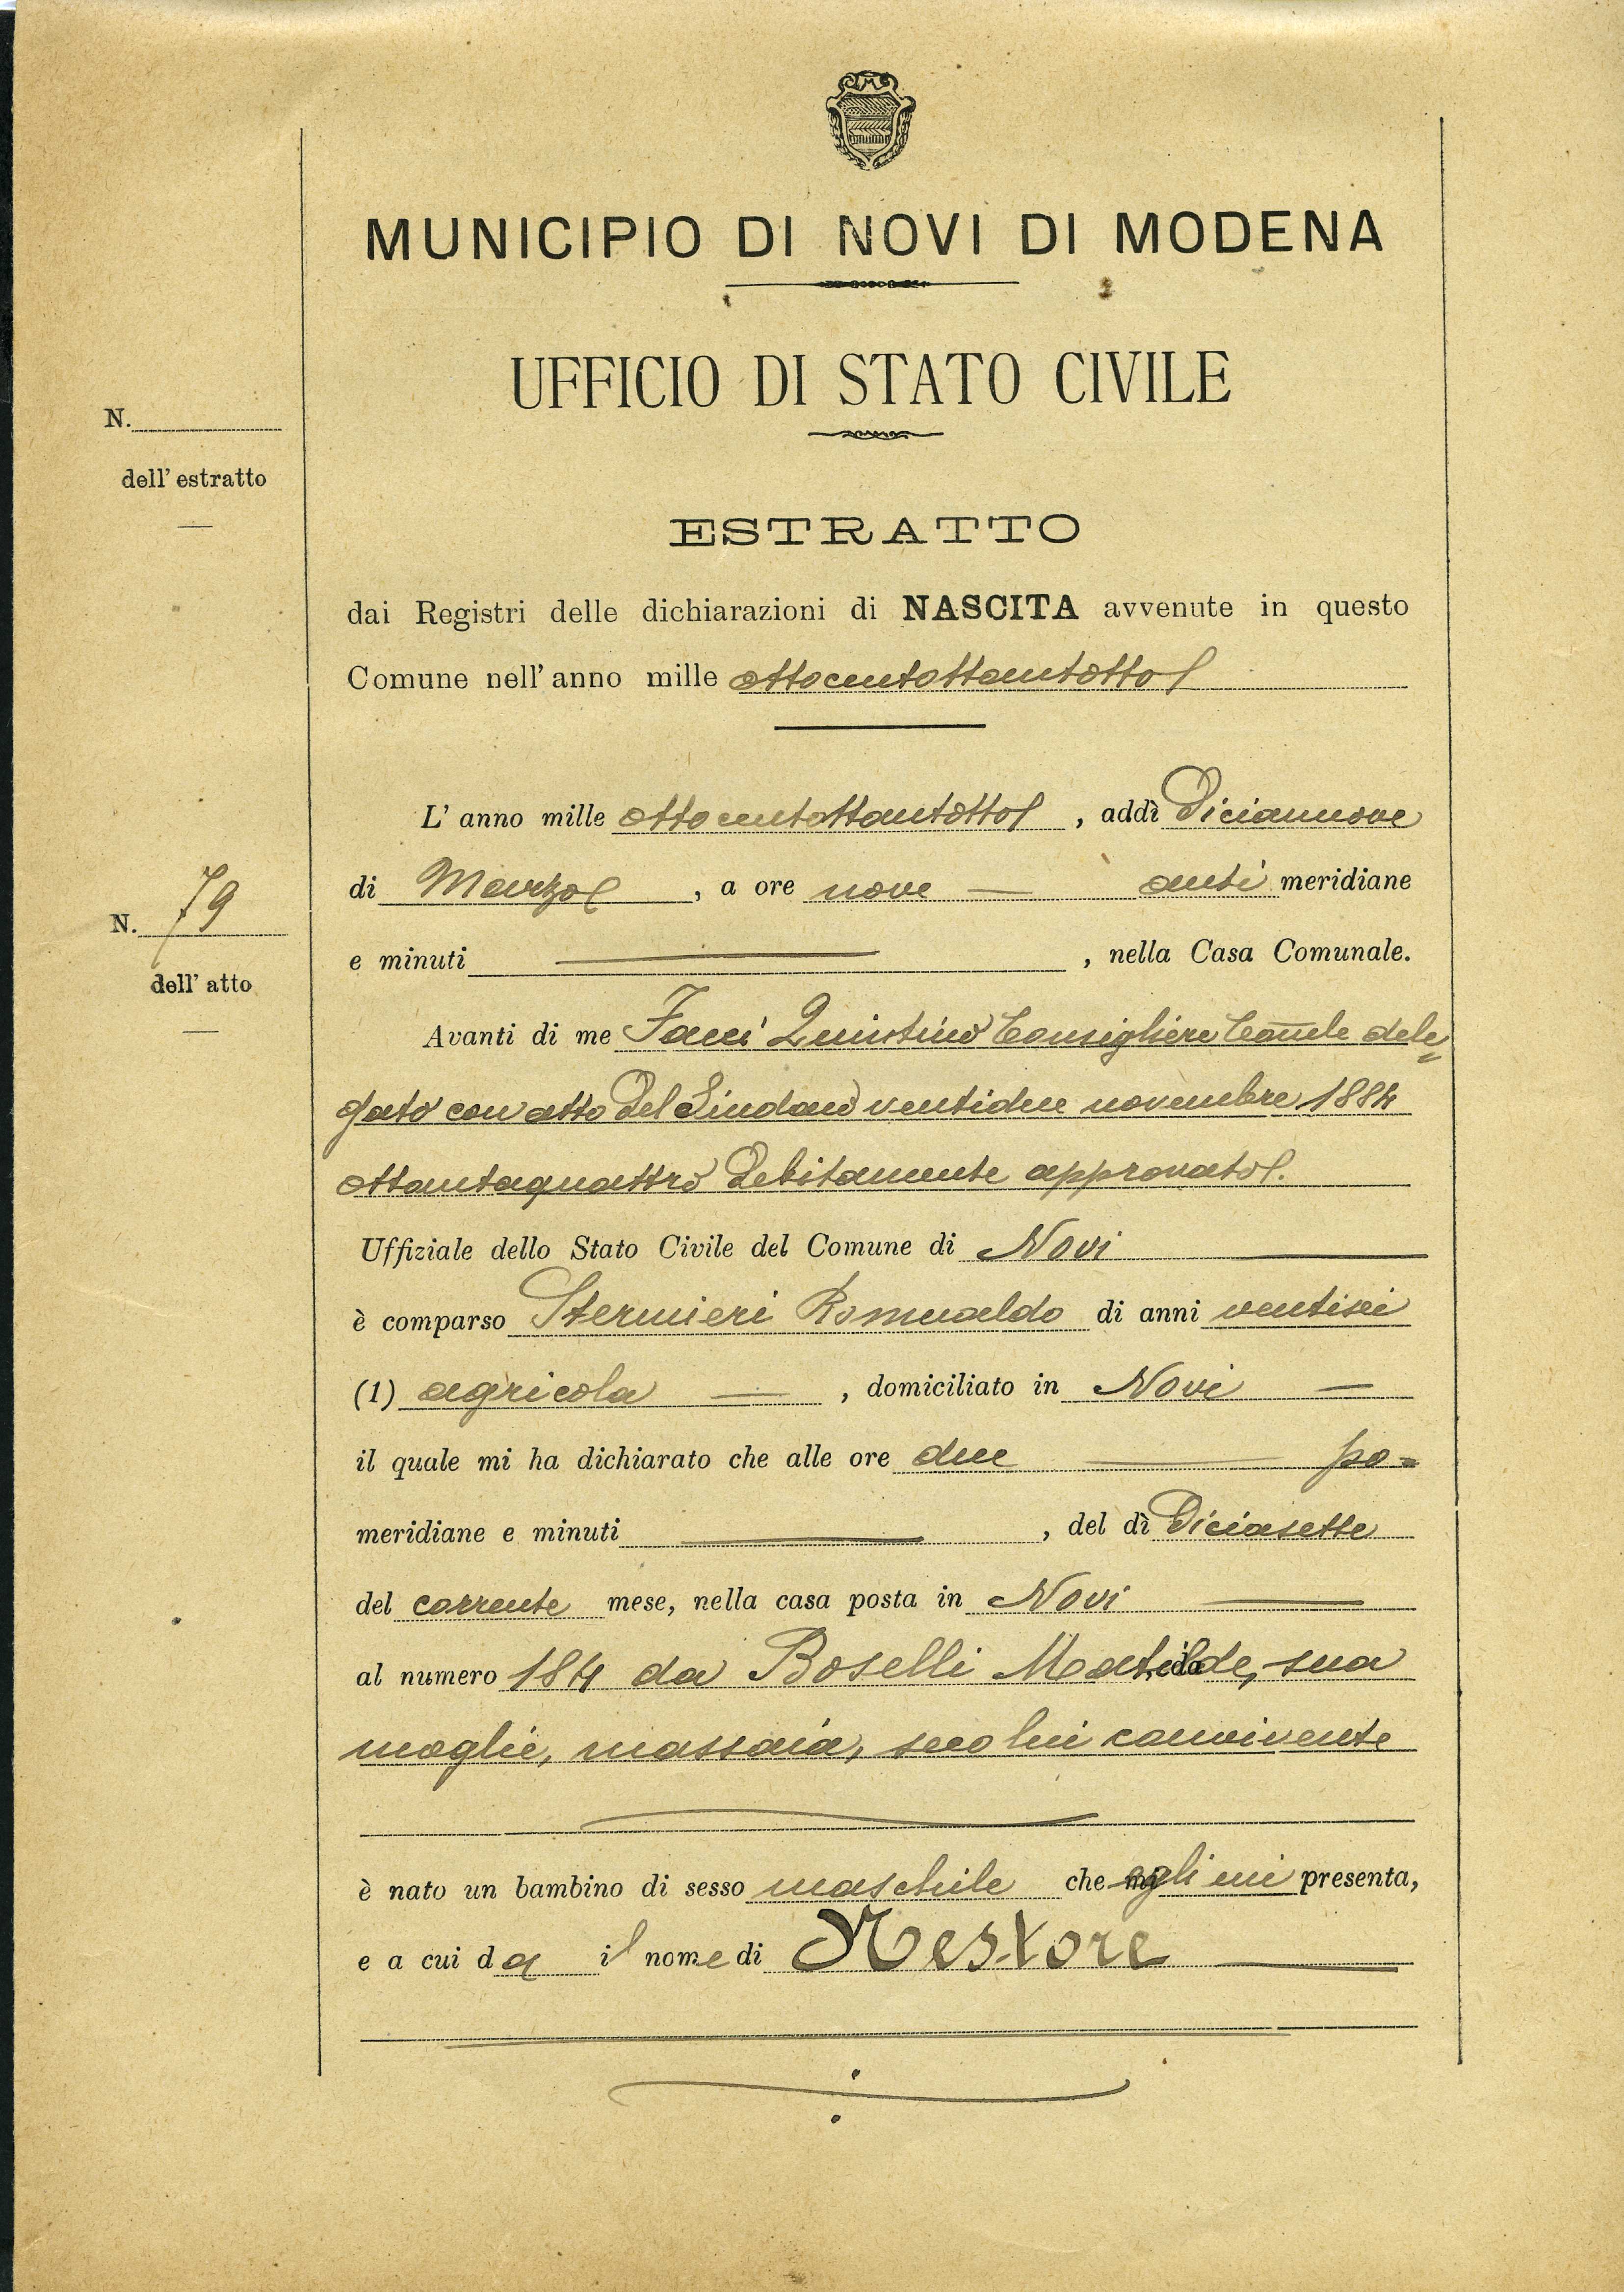 MUNICIPIO DI NOVI DI MODENA
UFFICIO DI STATO CIVILE
N.
dell' estratto
ESTRATTO
dai Registri delle dichiarazioni di NASCITA avvenute in questo
Comune nell' anno mille ottocentottantotto
L' anno mille ottocentottantotto, addì Diciannove
di Marzo, a ore nove — anti meridiane
N. 79
dell' atto
e minuti —, nella Casa Comunale.
Avanti di me Quintino Consigliere Com̄le dele=
gato con atto del Sindaco ventidue novembre 1884
ottantaquattro debitamente approvato.
Uffiziale dello Stato Civile del Comune di Novi —
è comparso Sternieri Romualdo di anni ventisei
(1) agricola —, domiciliato in Novi —
il quale mi ha dichiarato che alle ore due — po=
meridiane e minuti —, del dì Diciasette
del corrente mese, nella casa posta in Novi —
al numero 184 da Boselli Matilde, sua
moglie, massaia, seco lui convivente
è nato un bambino di sesso maschile che egli mi presenta,
e a cui da il nome di Nestore —